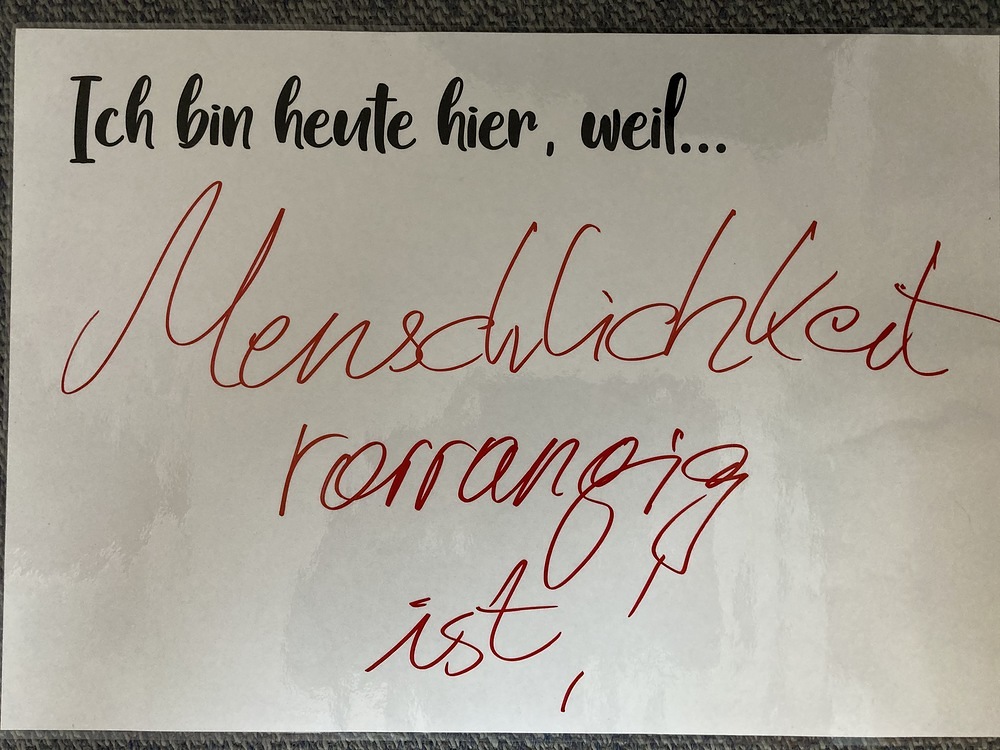 Ich bin heute hier, weil...
Menschlichkeit
vorrangig
ist,